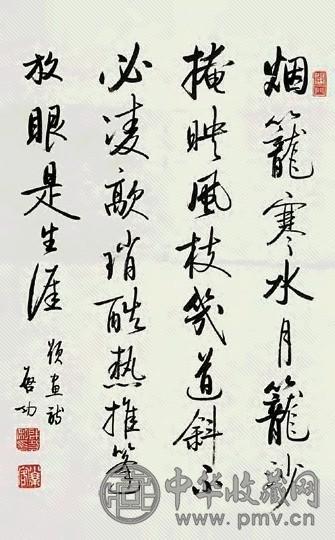 烟籠寒水月籠沙
掩映風枝幾道斜不
必凌歊消酷熱推篷
放眼是生涯
題畫詩
啓功
中华收藏网
www.pmv.cn